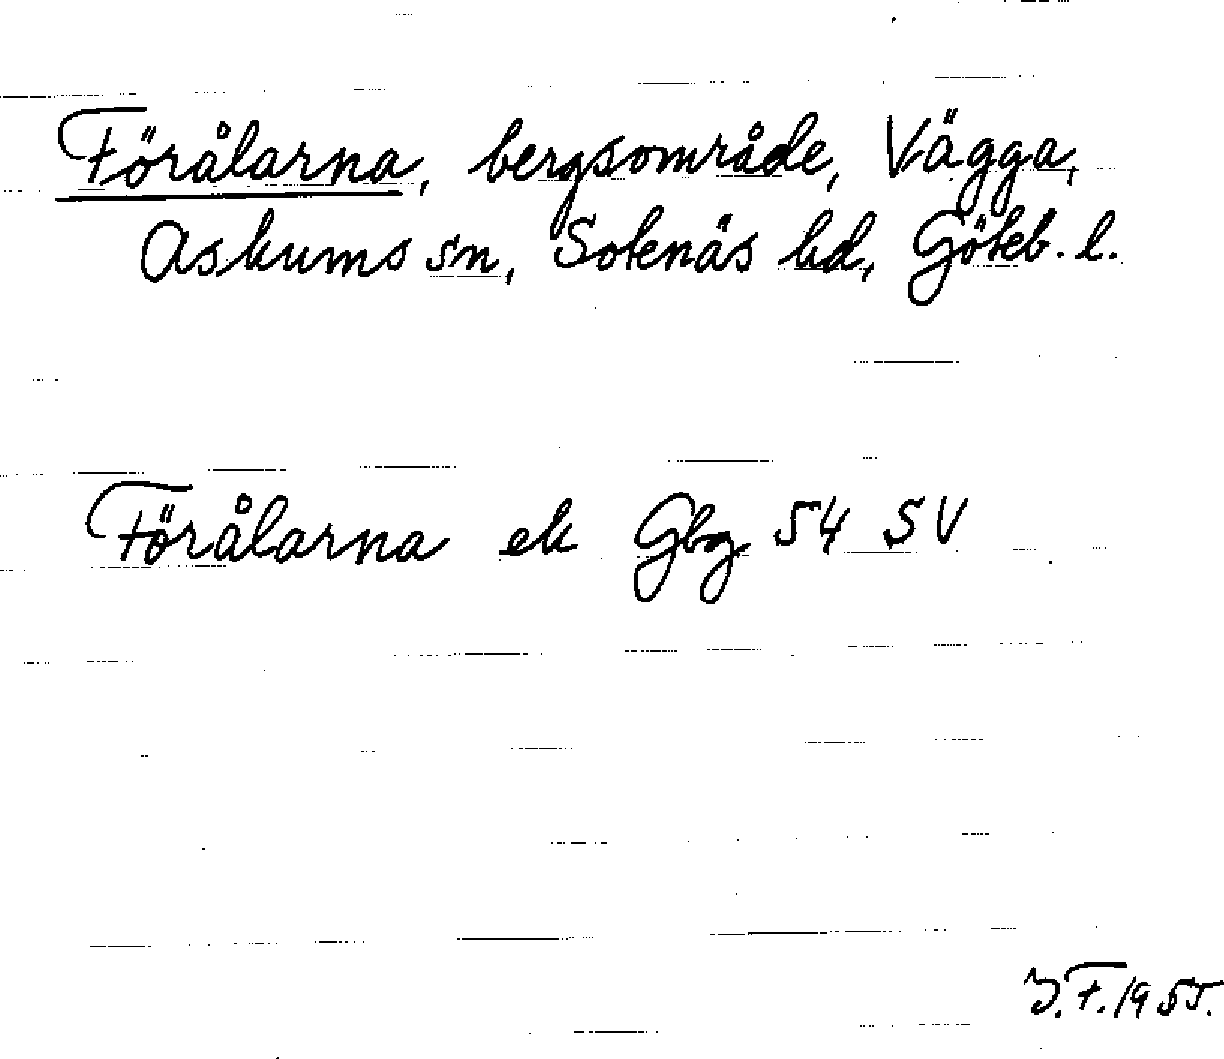 Förålarna, bergsområde, Vägga,
Askums sn, Sotenäs hd, Göteb. l.
Förålarna ek Gbg 54 SV
J.F. 1955.